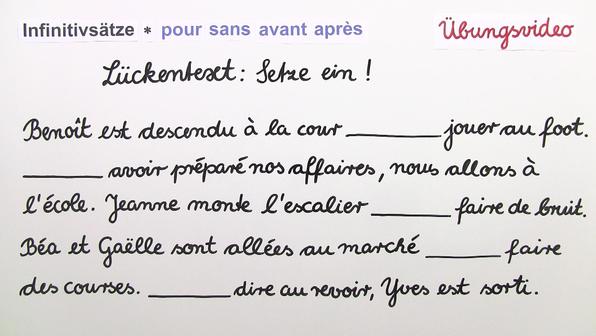 Infinitivsätze * pour sans avant après Übungsvideo
Lückentext: Setze ein !
Benoît est descendu à la cour ________ jouer au foot.
________ avoir préparé nos affaires, nous allons à
l'école. Jeanne monte l'escalier ________ faire de bruit.
Béa et Gaëlle sont allées au marché ________ faire
des courses. ________ dire au revoir, Yves est sorti.